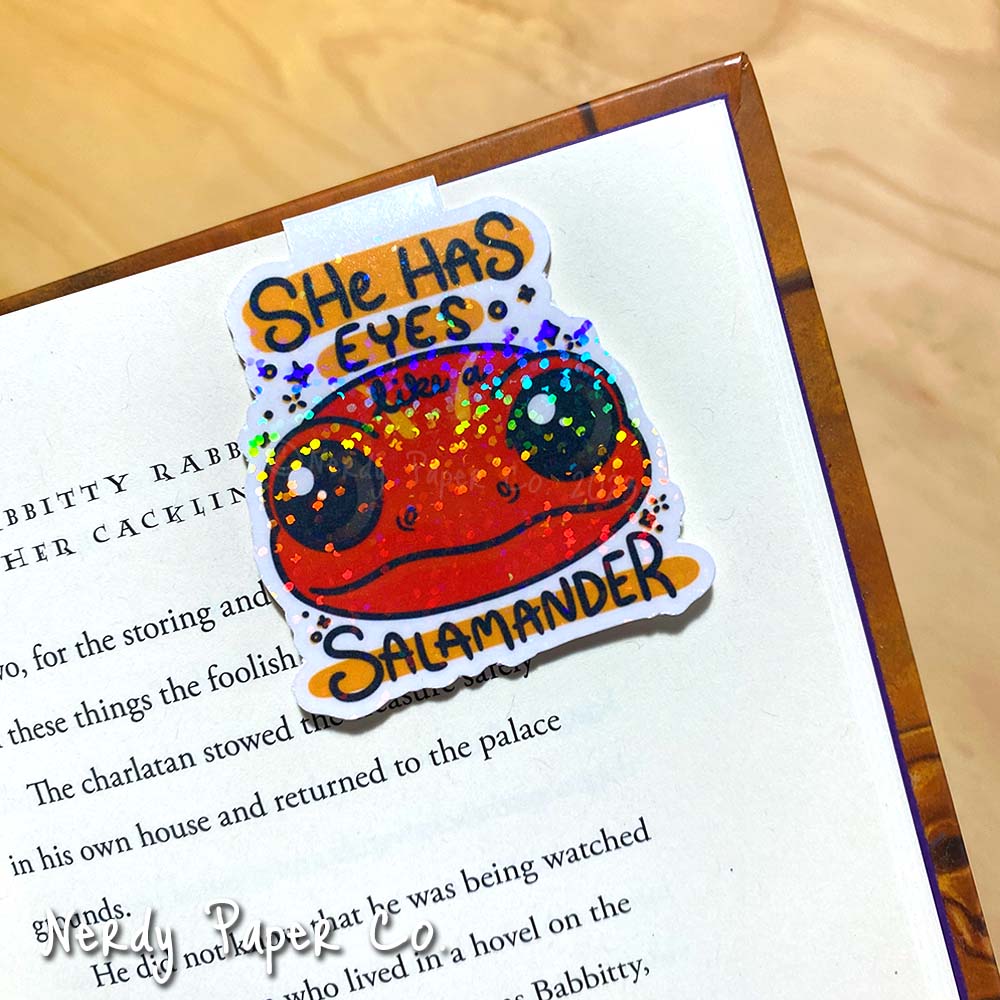 SHe HAS
EYES
like a
© Nerdy Paper Co. 20
SALAMANDER
BBITTY RABB
HER CACKLIN
wo, for the storing and
these things the foolish
The charlatan stowed the treasure safely
in his own house and returned to the palace
grounds.
He did not know that he was being watched
who lived in a hovel on the
Babbitty,
Nerdy Paper Co.